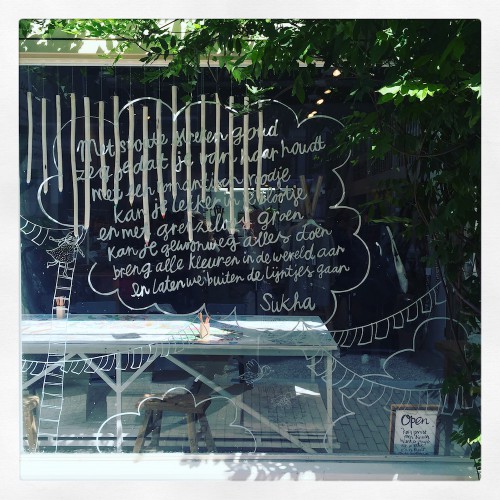 Met stoute strepen goud
zeg je dat je van haar houdt
met een romantiek roodje
kan je lekker in je blootje
en met gredelig groen
kan je gewoonweg alles doen
breng alle kleuren in de wereld aan
en laten we buiten de lijntjes gaan
Sukha
Open